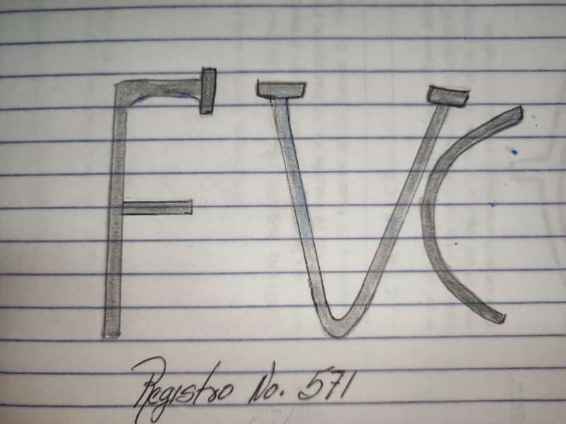 FVC
Registro No. 571